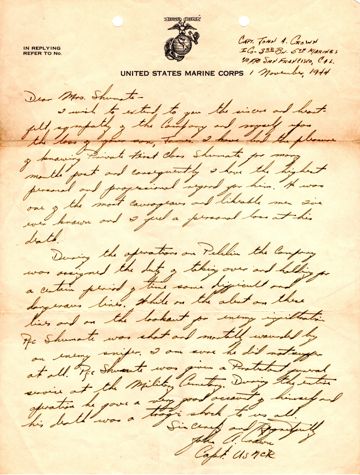 IN REPLYING
REFER TO NO.
Capt. John A. Crown
I Co. 3rd Bn. 5th Marines
℅ FPO San Francisco, Cal.
UNITED STATES MARINE CORPS
1 November, 1944
Dear Mrs. Shumate -
I wish to extend to you the sincere and heart
felt sympathy of the Company and myself upon
the loss of your son, James. I have had the pleasure
of knowing Private First Class Shumate for many
months past and consequently I have the highest
personal and professional regard for him. He was
one of the most courageous and likable men I've
ever known and I feel a personal loss at his
death.
During the operations on Peleliu the Company
was assigned the duty of taking over and holding for
a certain period of time some difficult and
dangerous lines. While on the alert on these
lines and on the lookout for enemy infiltration
Pfc Shumate was shot and mortally wounded by
an enemy sniper. I am sure he did not suffer
at all. Pfc Shumate was given a Protestant funeral
service at the Military Cemetery. During the entire
operation he gave a very good account of himself and
his death was a tragic shock to us all.
Sincerely and Respectfully
John A. Crown
Capt. USMCR